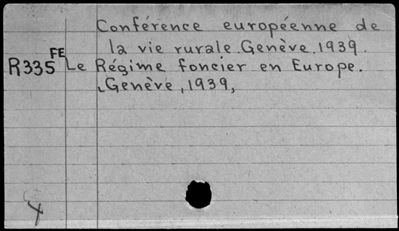 Conférence européenne de
la vie rurale. Genève. 1939.
FE
R335 Le Régime foncier en Europe.
Genève, 1939,